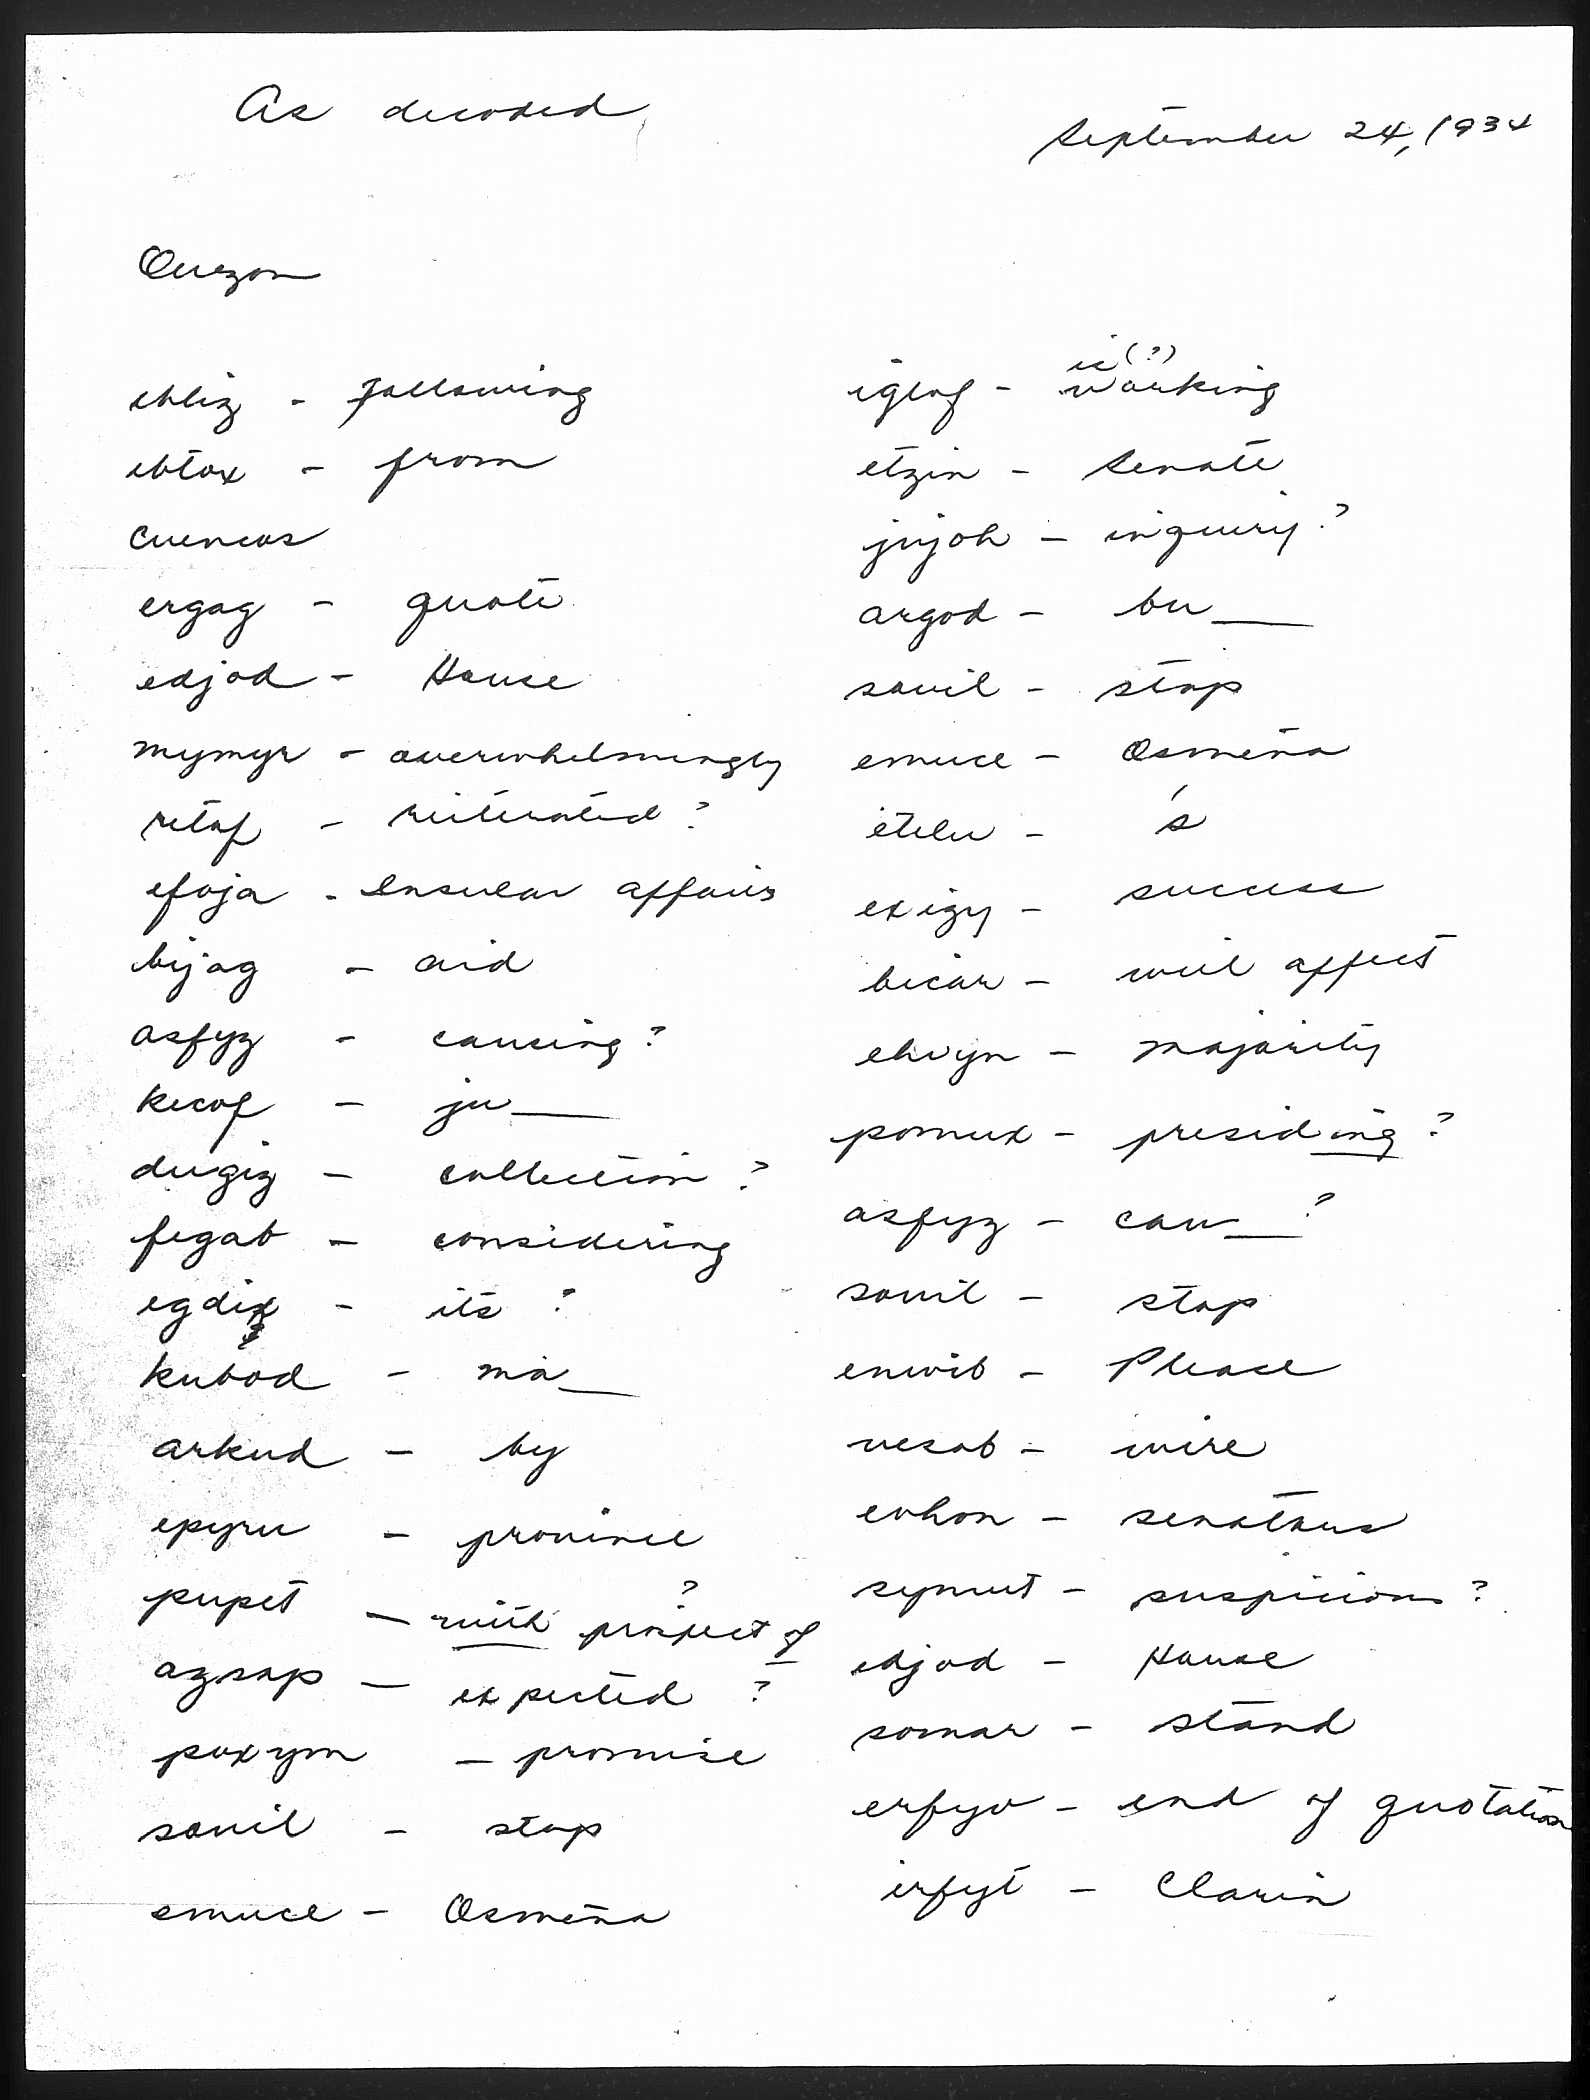 As decoded
September 24, 1934
Quezon
ehliz - following
ebtox - from
Cuencos
ergag - quote
edjod - House
mymyr - overwhelmingly
retaf - reiterated ?
efoja - Insular affairs
bijag - aid
asfyz - causing ?
kecof - ju___
dugiz - collection ?
fegab - considering
egdix - its ?
kubod - ma___
arkud - by
epyru - province
pupet - with ? project of
azsap - expected ?
poxym - promise
sovil - stop
emuce - Osmeña
iglof - is (?) working
etzin - Senate
jujoh - inquiry ?
argod - bu___
sovil - stop
emuce - Osmeña
etelu - 's
exigy - success
bicar - will affect
ehvyn - majority
pomux - presiding ?
asfyz - cau___ ?
sovil - stop
enwib - Please
vesab - wire
evhon - senators
symut - suspicion ?
edjod - House
somar - stand
erfyv - end of quotation
irfyt - Clarin